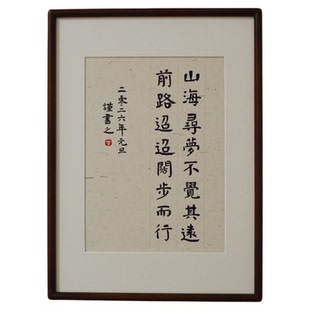 山海尋夢不覺其遠
前路迢迢闊步而行
二零二六年元旦
謹書之